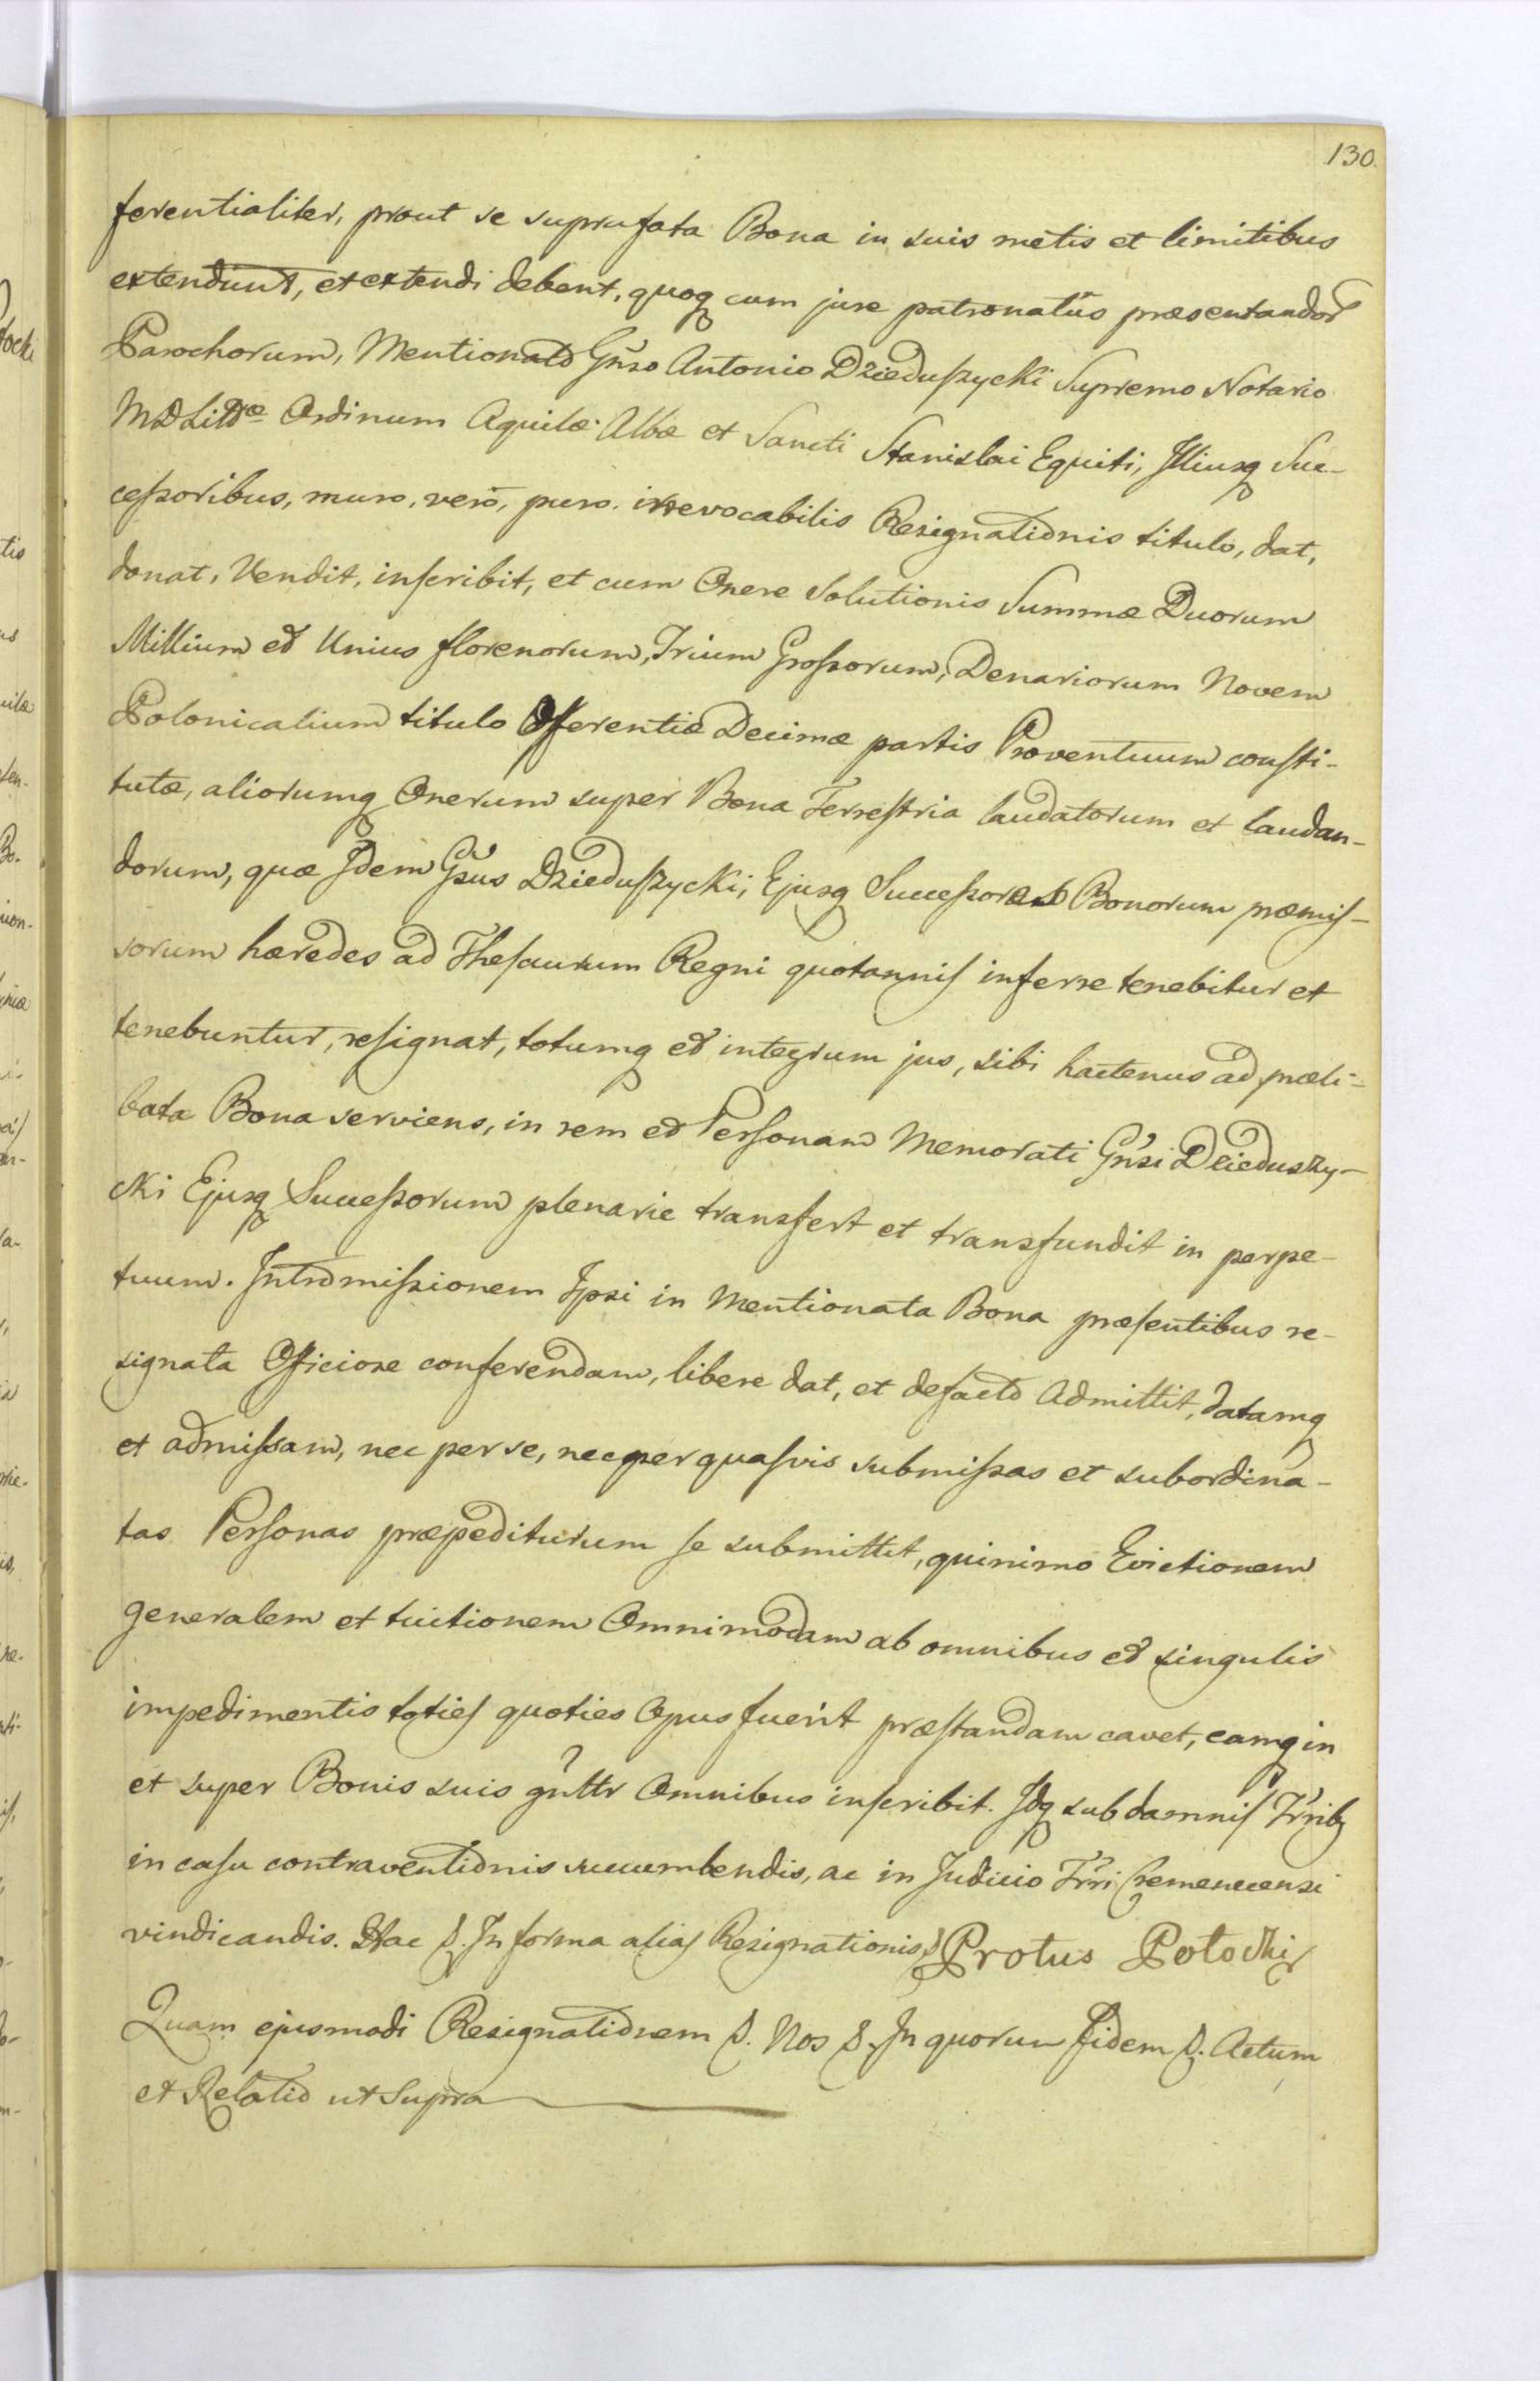 130.
ferentialiter, prout se suprafata Bona in suis metis et limitibus
extendunt, et extendi debent, quoq cum jure patronatûs præsentandor
Parochorum, Mentionato Gñso Antonio Dzieduszycki Supremo Notario
MDLittæ Ordinum Aquilæ Albæ et Sancti Stanislai Equiti, Illiusq Suc-
cessoribus, mero, vero, puro. irrevocabilis Resignationis titulo, dat,
donat, Vendit, inscribit, et cum Onere Solutionis Summæ Duorum
Millium et Unius florenorum, Trium Grossorum, Denariorum Novem
Polonicalium titulo Offerentiæ Decimæ partis Proventuum consti-
tutæ, aliorumq Onerum super Bona Terrestria laudatorum et laudan-
dorum, quæ Idem Gsus Dzieduszycki, Ejusq Successores Bonorum præmis-
sorum hæredes ad Thesaurum Regni quotannis inferre tenebitur et
tenebuntur, resignat, totumq et integrum jus, sibi hactenus ad præli-
bata Bona serviens, in rem et Personam Memorati Gñsi Dzieduszy-
cki Ejusq Successorum plenarie transfert et transfundit in perpe-
tuum. Intromissionem Ipsi in Mentionata Bona præsentibus re-
signata Officiose conferendam, libere dat, et defacto Admittit, datamq
et admissam, nec per se, nec per quasvis submissas et subordina-
tas Personas præpediturum se submittit, quinimo Evictionem
generalem et tuitionem Omnimodam ab omnibus et singulis
impedimentis toties quoties Opus fuerit præstandam cavet, eamq in
et super Bonis suis gñltr Omnibus inscribit. Idq sub damnis Trribq
in casu contraventionis succumbendis, ac in Judicio Trri Cremenecensi
vindicandis. Hac &. In forma alias Resignationis & Protus Potocki
Quam ejusmodi Resignationem &. Nos &. In quorum fidem &. Actum
et Relatio ut Supra